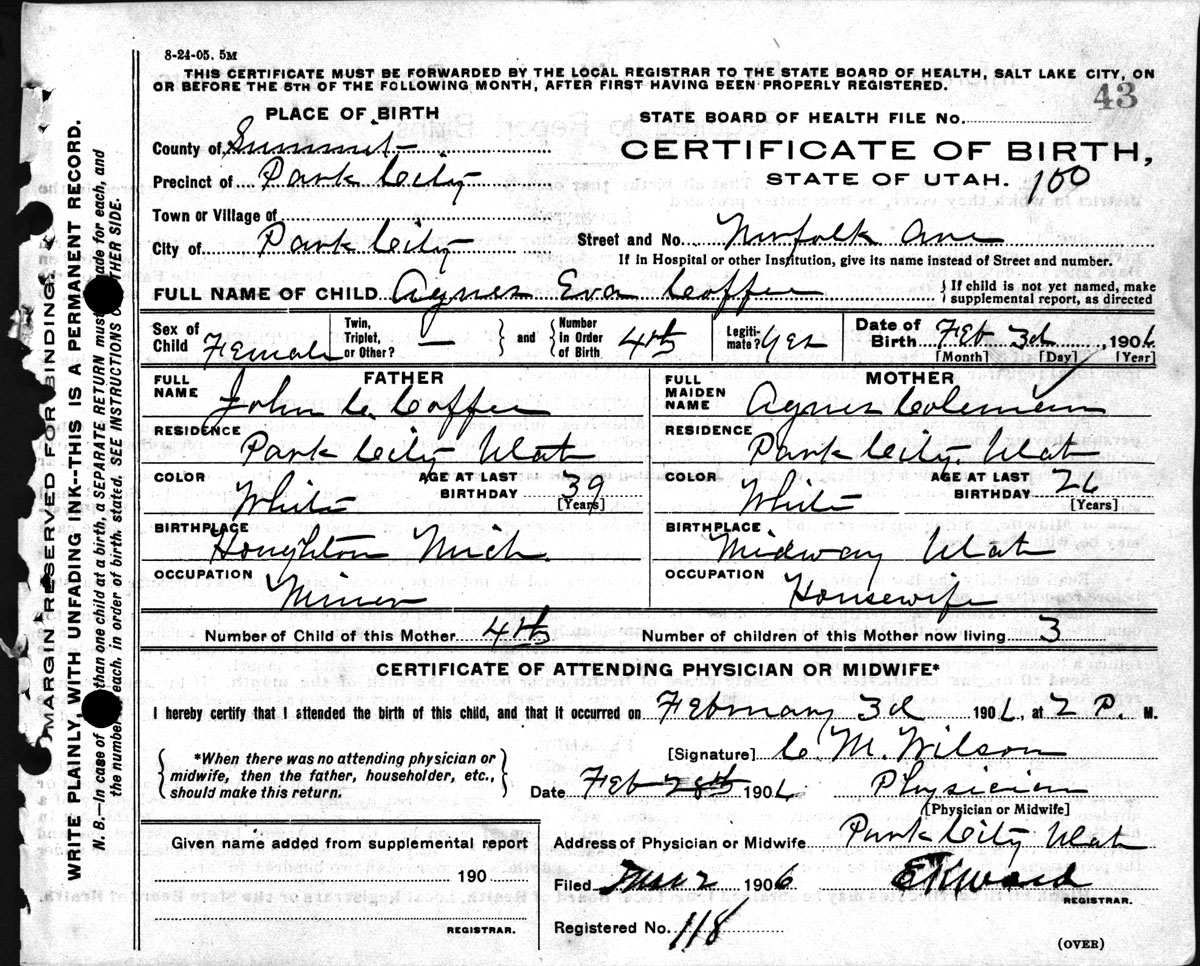 8-24-05. 5M
THIS CERTIFICATE MUST BE FORWARDED BY THE LOCAL REGISTRAR TO THE STATE BOARD OF HEALTH, SALT LAKE CITY, ON
OR BEFORE THE 5TH OF THE FOLLOWING MONTH, AFTER FIRST HAVING BEEN PROPERLY REGISTERED.
43
PLACE OF BIRTH
STATE BOARD OF HEALTH FILE No.
County of Summit
CERTIFICATE OF BIRTH,
Precinct of Park City
STATE OF UTAH. 100
Town or Village of
City of Park City Street and No. Norfolk Ave
If in Hospital or other Institution, give its name instead of Street and number.
FULL NAME OF CHILD Agnes Eva Coffee { If child is not yet named, make supplemental report, as directed
Sex of Child Female Twin, Triplet, or Other? - } and { Number in Order of Birth 4th Legitimate? Yes Date of Birth Feb 3d, 1906
[Month] [Day] [Year]
FATHER MOTHER
FULL NAME John C. Coffee FULL MAIDEN NAME Agnes Coleman
RESIDENCE Park City Utah RESIDENCE Park City, Utah
COLOR White AGE AT LAST BIRTHDAY 39 [Years] COLOR White AGE AT LAST BIRTHDAY 26 [Years]
BIRTHPLACE Houghton Mich. BIRTHPLACE Midway Utah
OCCUPATION Miner OCCUPATION Housewife
Number of Child of this Mother 4th Number of children of this Mother now living 3
CERTIFICATE OF ATTENDING PHYSICIAN OR MIDWIFE*
I hereby certify that I attended the birth of this child, and that it occurred on February 3d 1906, at 2 P. M.
{ *When there was no attending physician or midwife, then the father, householder, etc., should make this return. }
[Signature] C. M. Wilson
Date Feb 28th 1906 Physician
[Physician or Midwife]
Given name added from supplemental report
Address of Physician or Midwife Park City Utah
190
Filed Mar 2 1906 E K Ward
REGISTRAR.
REGISTRAR.
Registered No. 118
(OVER)
MARGIN RESERVED FOR BINDING.
WRITE PLAINLY, WITH UNFADING INK--THIS IS A PERMANENT RECORD.
N. B.—In case of than one child at a birth, a SEPARATE RETURN must made for each, and
the number each, in order of birth, stated. SEE INSTRUCTIONS OTHER SIDE.